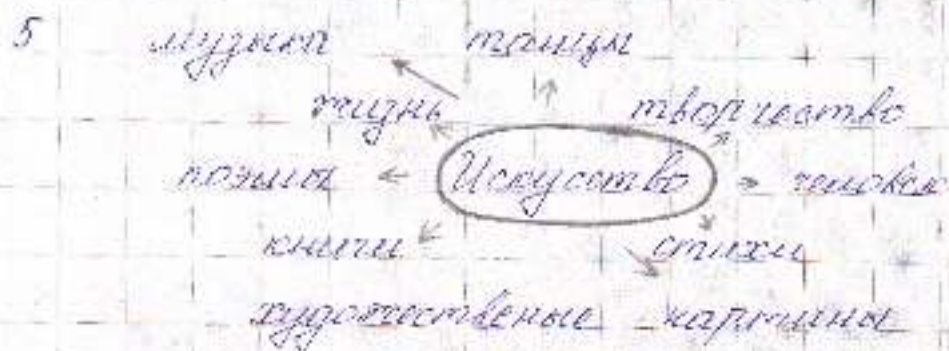 5 музыка танцы
жизнь творчество
поэмы Искусство человек
книги стихи
художественые картины